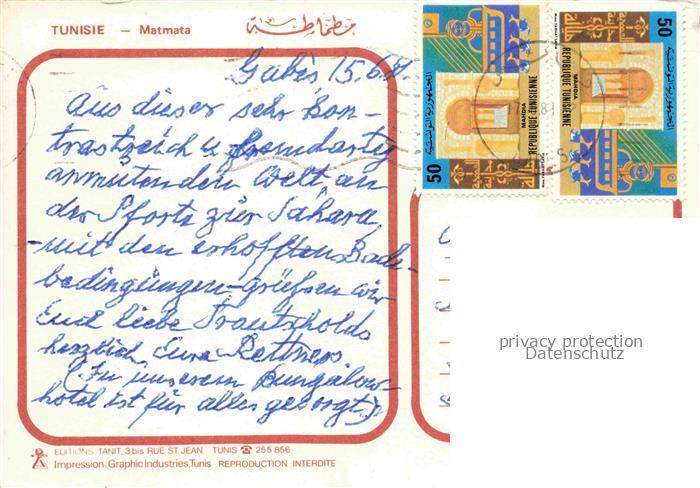 TUNISIE – Matmata مطماطة
Gabès 15.6.81.
Aus dieser sehr kon-
trastreich u fremdartig
anmutenden Welt, an
der Pforte zur Sahara,
-mit den erhofften Bade-
bedingungen- grüßen wir
Euch liebe Trautscholds
herzlich, Eure Rettners
(In unserem Bungalow-
hotel ist für alles gesorgt!)
50
MAHDIA
REPUBLIQUE TUNISIENNE
الجمهورية التونسية
50
MAHDIA
REPUBLIQUE TUNISIENNE
الجمهورية التونسية
privacy protection
Datenschutz
EDITIONS TANIT, 3 bis RUE ST. JEAN TUNIS ☎ 255 856
Impression: Graphic Industries, Tunis REPRODUCTION INTERDITE